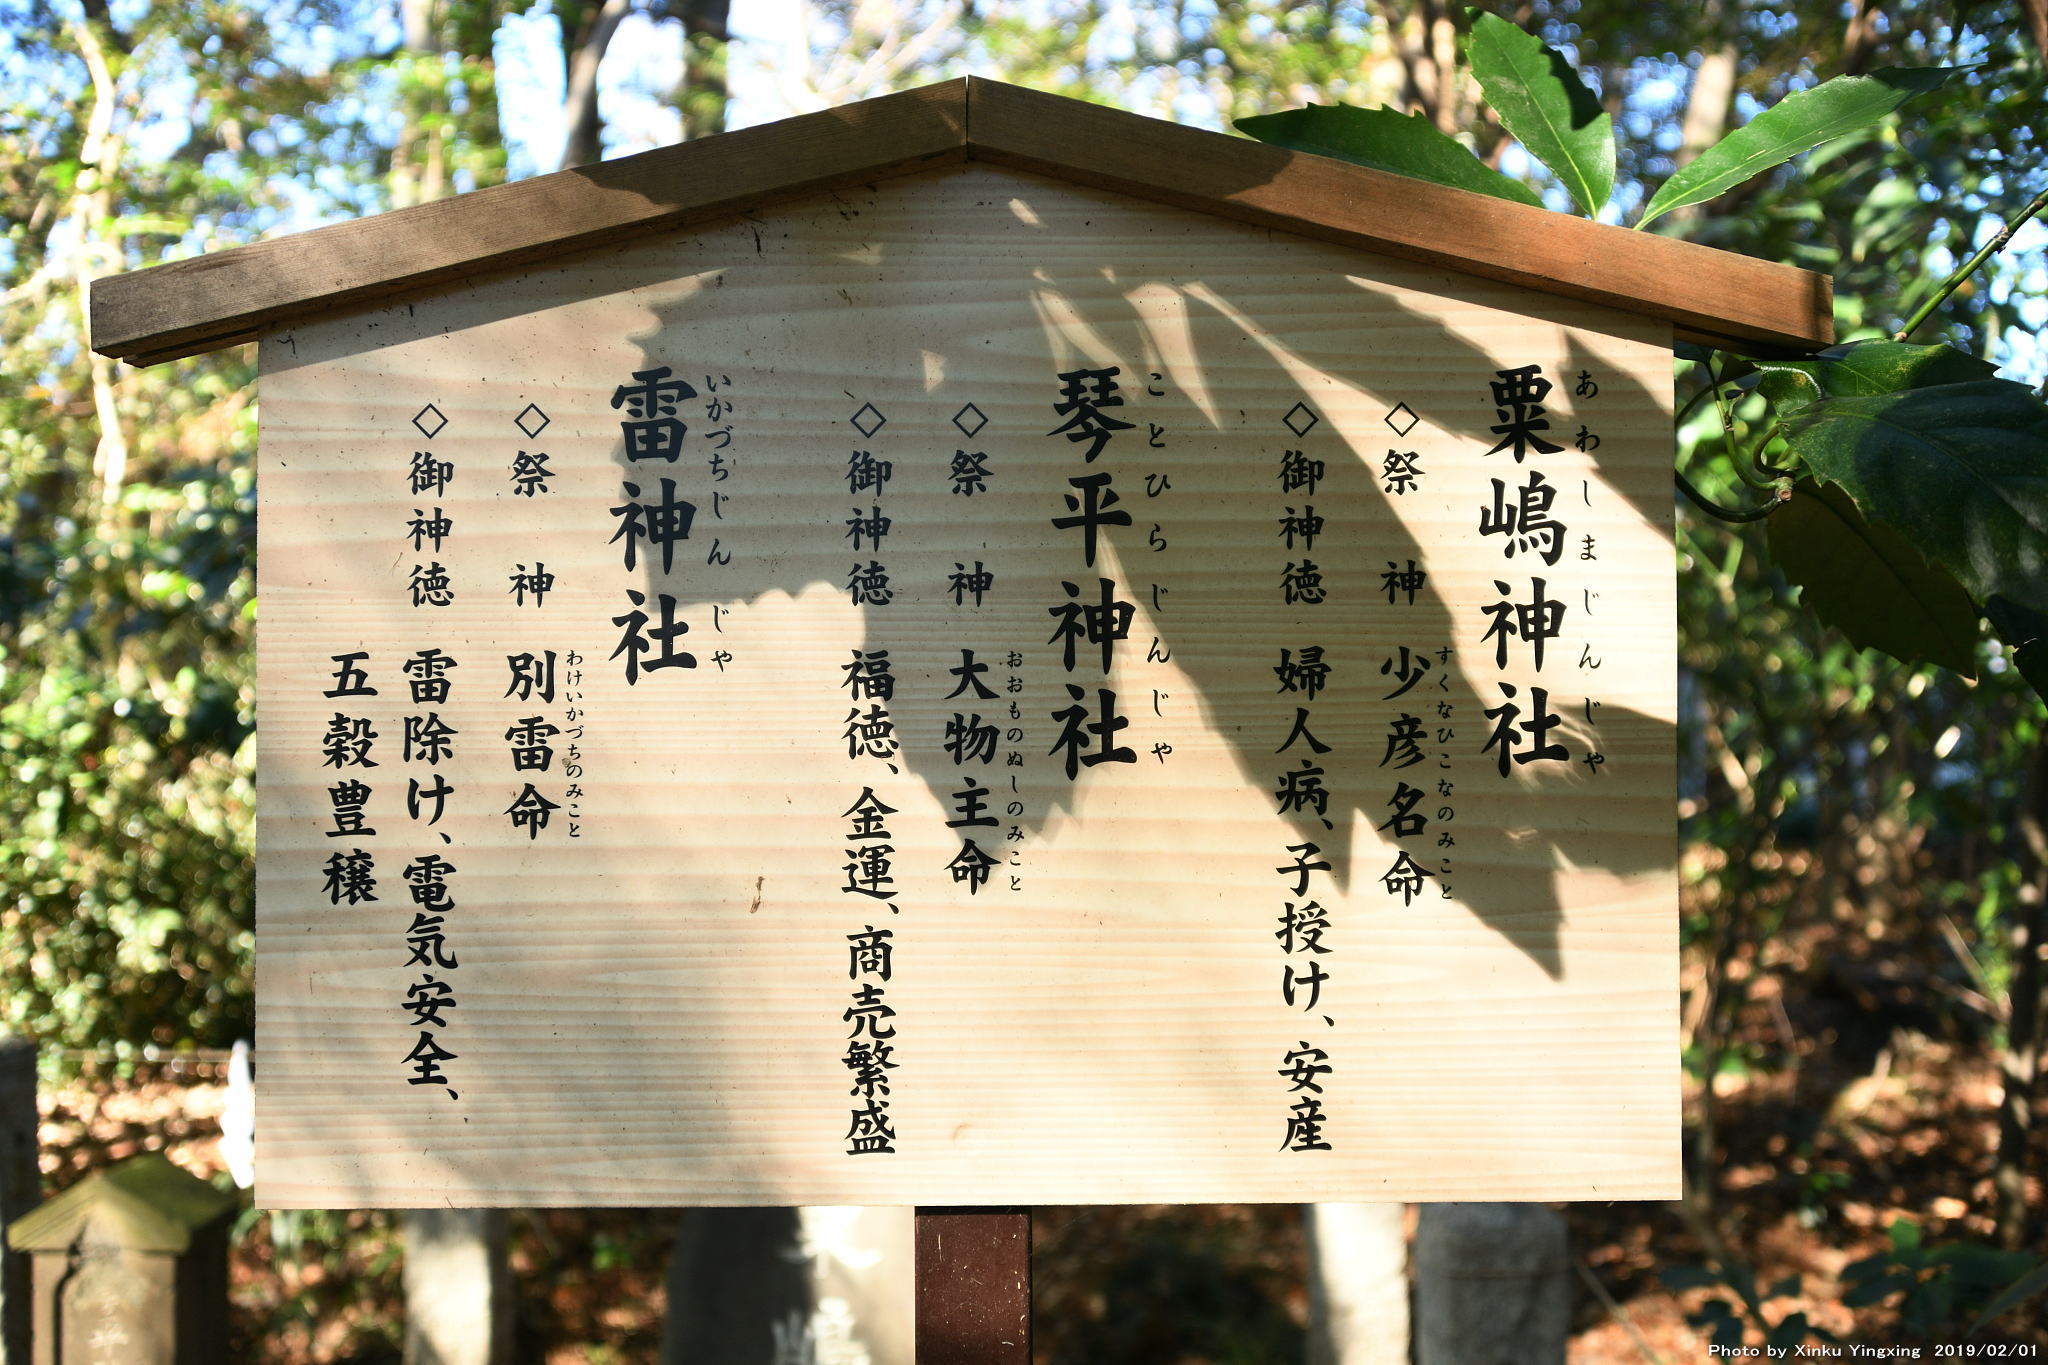 粟嶋神社
あわしまじんじゃ
◇祭　神　少彦名命
すくなひこなのみこと
◇御神徳　婦人病、子授け、安産
琴平神社
ことひらじんじゃ
◇祭　神　大物主命
おおものぬしのみこと
◇御神徳　福徳、金運、商売繁盛
雷神社
いかづちじんじゃ
◇祭　神　別雷命
わけいかづちのみこと
◇御神徳　雷除け、電気安全、
五穀豊穣
Photo by Xinku Yingxing 2019/02/01